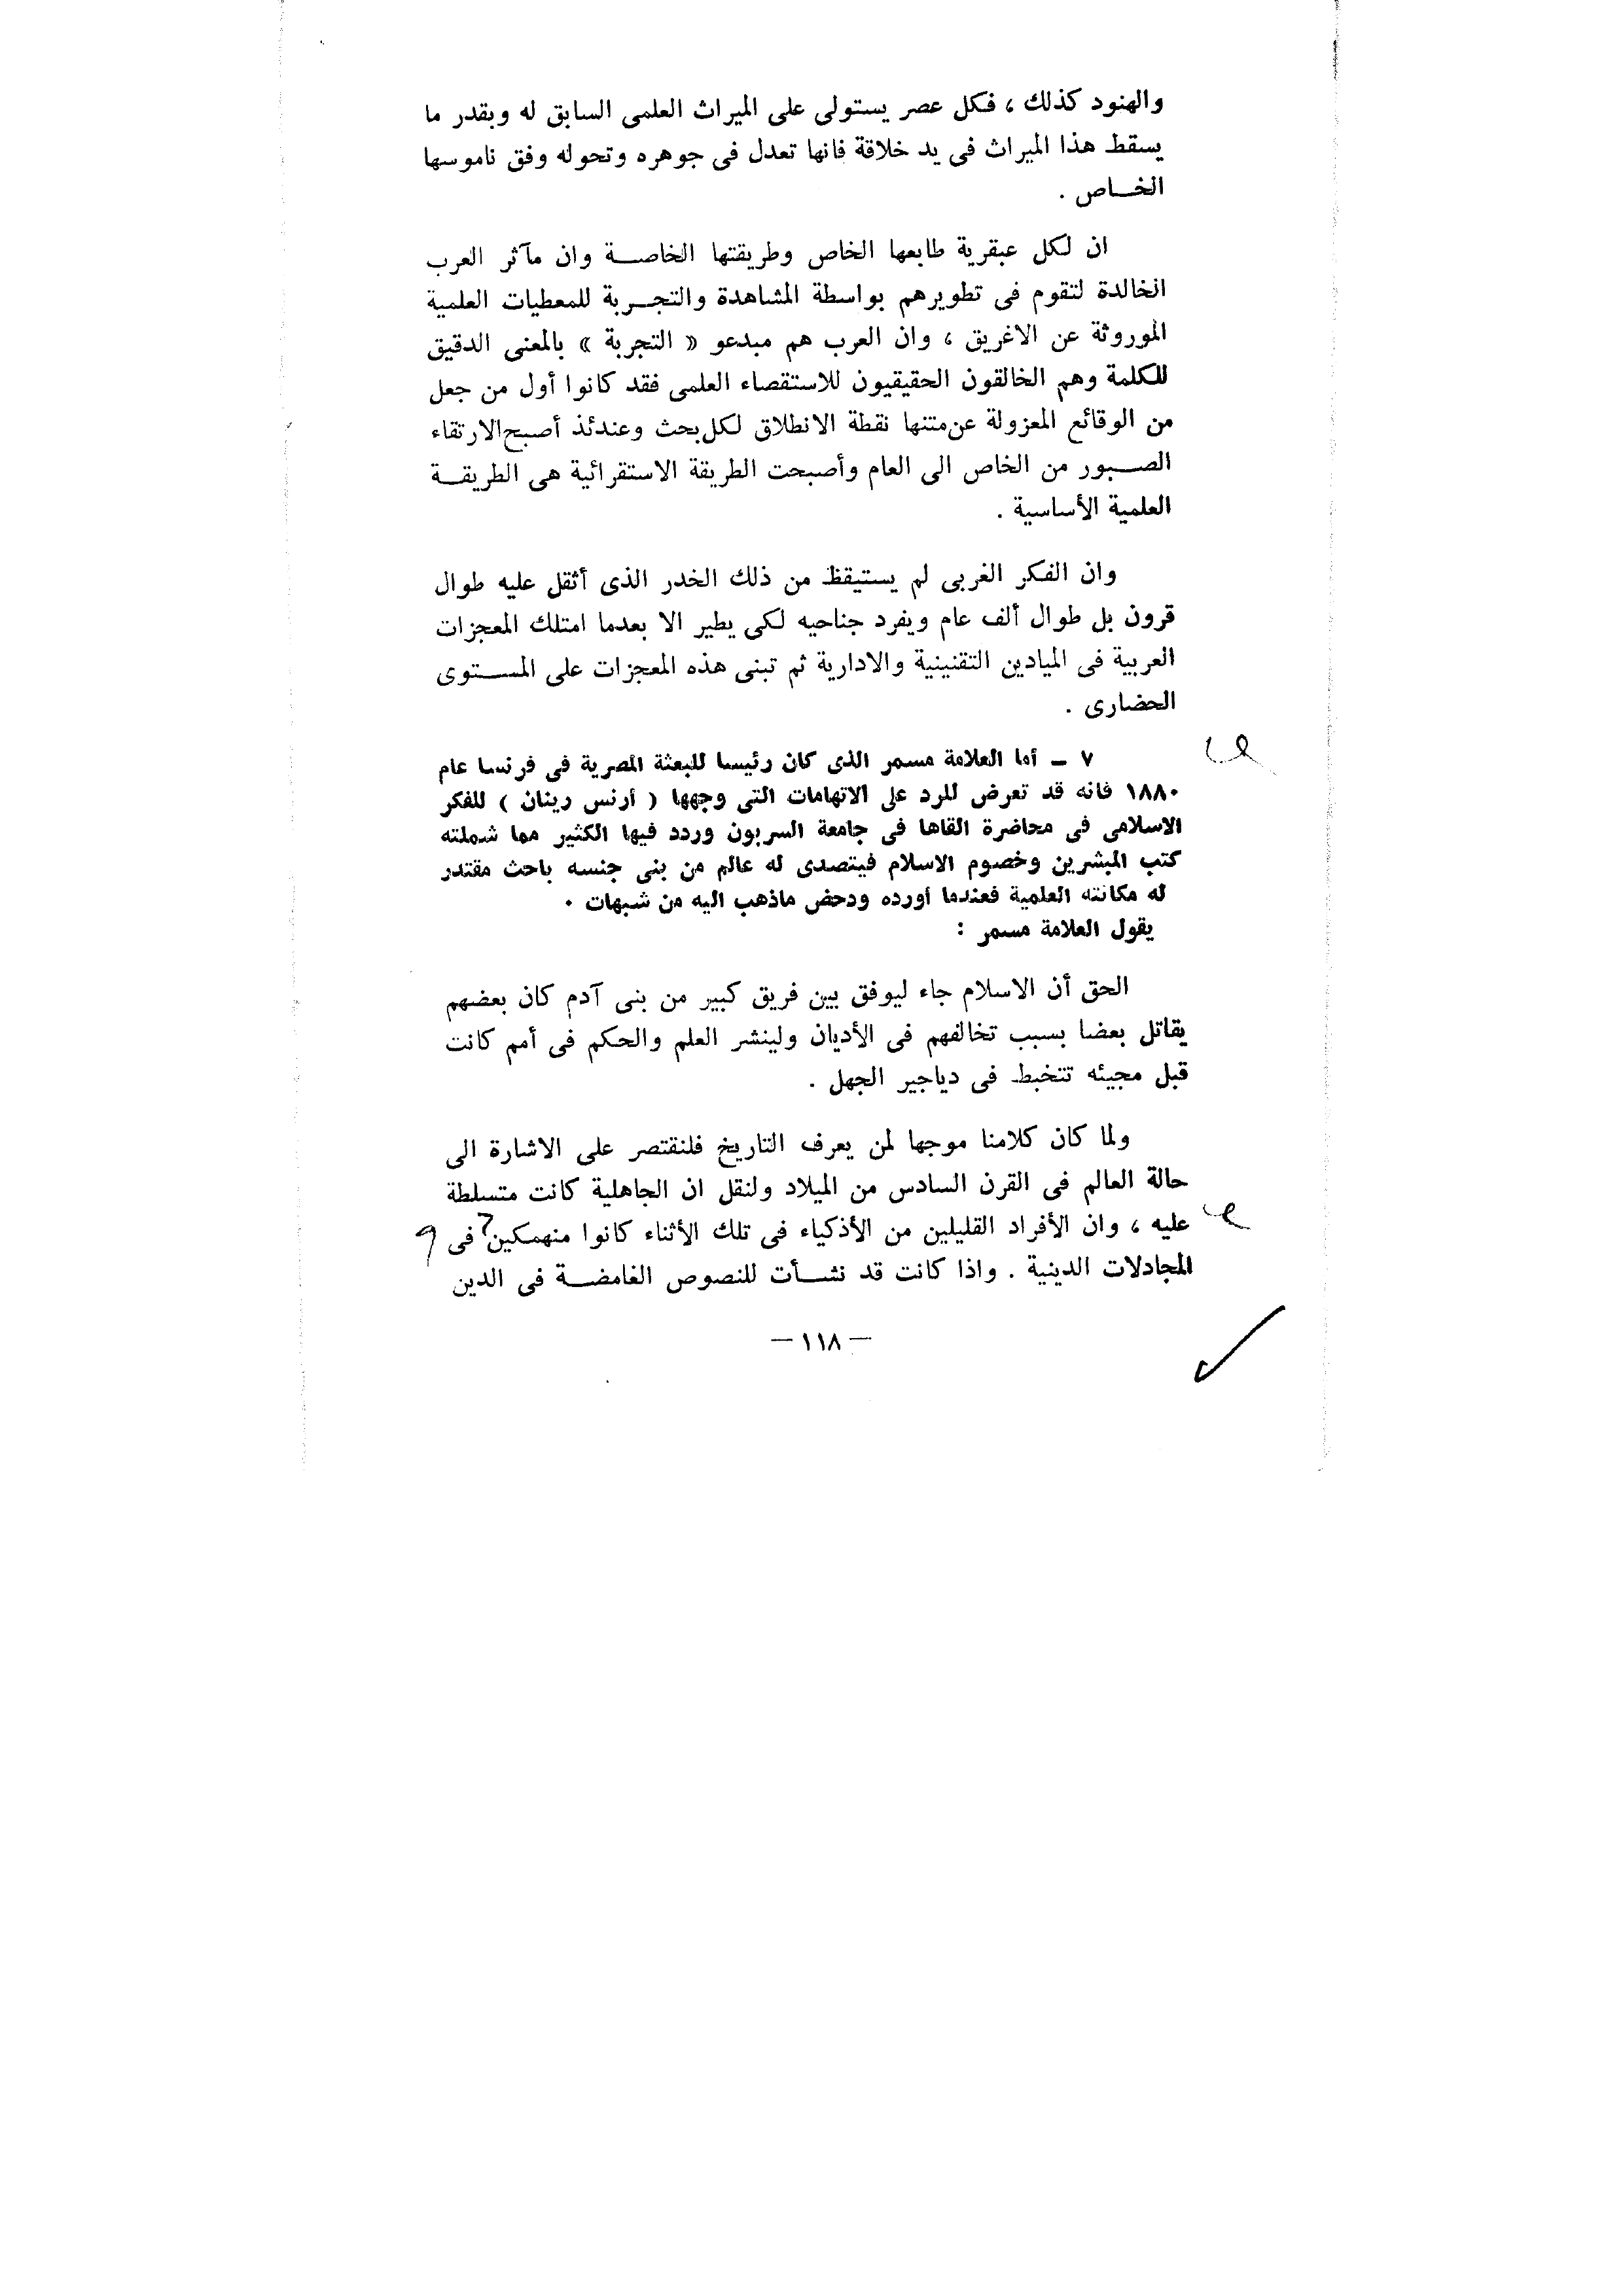 والهنود كذلك ، فكل عصر يستولى على الميراث العلمى السابق له وبقدر ما
يسقط هذا الميراث فى يد خلاقة فانها تعدل فى جوهره وتحوله وفق ناموسها
الخـــاص .
ان لكل عبقرية طابعها الخاص وطريقتها الخاصـــة وان مآثر العرب
الخالدة لتقوم فى تطويرهم بواسطة المشاهدة والتجـــربة للمعطيات العلمية
الموروثة عن الاغريق ، وان العرب هم مبدعو « التجربة » بالمعنى الدقيق
للكلمة وهم الخالقون الحقيقيون للاستقصاء العلمى فقد كانوا أول من جعل
من الوقائع المعزولة عن متنها نقطة الانطلاق لكل بحث وعندئذ أصبح الارتقاء
الصـــبور من الخاص الى العام وأصبحت الطريقة الاستقرائية هى الطريقـــة
العلمية الأساسية .
وان الفكر الغربى لم يستيقظ من ذلك الخدر الذى أثقل عليه طوال
قرون بل طوال ألف عام ويفرد جناحيه لكى يطير الا بعدما امتلك المعجزات
العربية فى الميادين التقنينية والادارية ثم تبنى هذه المعجزات على المســـتوى
الحضارى .
٧ ــ أما العلامة مسمر الذى كان رئيسا للبعثة المصرية فى فرنسا عام
١٨٨٠ فانه قد تعرض للرد على الاتهامات التى وجهها ( أرنس رينان ) للفكر
الاسلامى فى محاضرة القاها فى جامعة السربون وردد فيها الكثير مما شملته
كتب المبشرين وخصوم الاسلام فيتصدى له عالم من بنى جنسه باحث مقتدر
له مكانته العلمية فعندما أورده ودحض ماذهب اليه من شبهات .
يقول العلامة مسمر :
الحق أن الاسلام جاء ليوفق بين فريق كبير من بنى آدم كان بعضهم
يقاتل بعضا بسبب تخالفهم فى الأديان ولينشر العلم والحكم فى أمم كانت
قبل مجيئه تتخبط فى دياجير الجهل .
ولما كان كلامنا موجها لمن يعرف التاريخ فلنقتصر على الاشارة الى
حالة العالم فى القرن السادس من الميلاد ولنقل ان الجاهلية كانت متسلطة
عليه ، وان الأفراد القليلين من الأذكياء فى تلك الأثناء كانوا منهمكين فى
المجادلات الدينية . واذا كانت قد نشـــأت للنصوص الغامضـــة فى الدين
— ١١٨ —